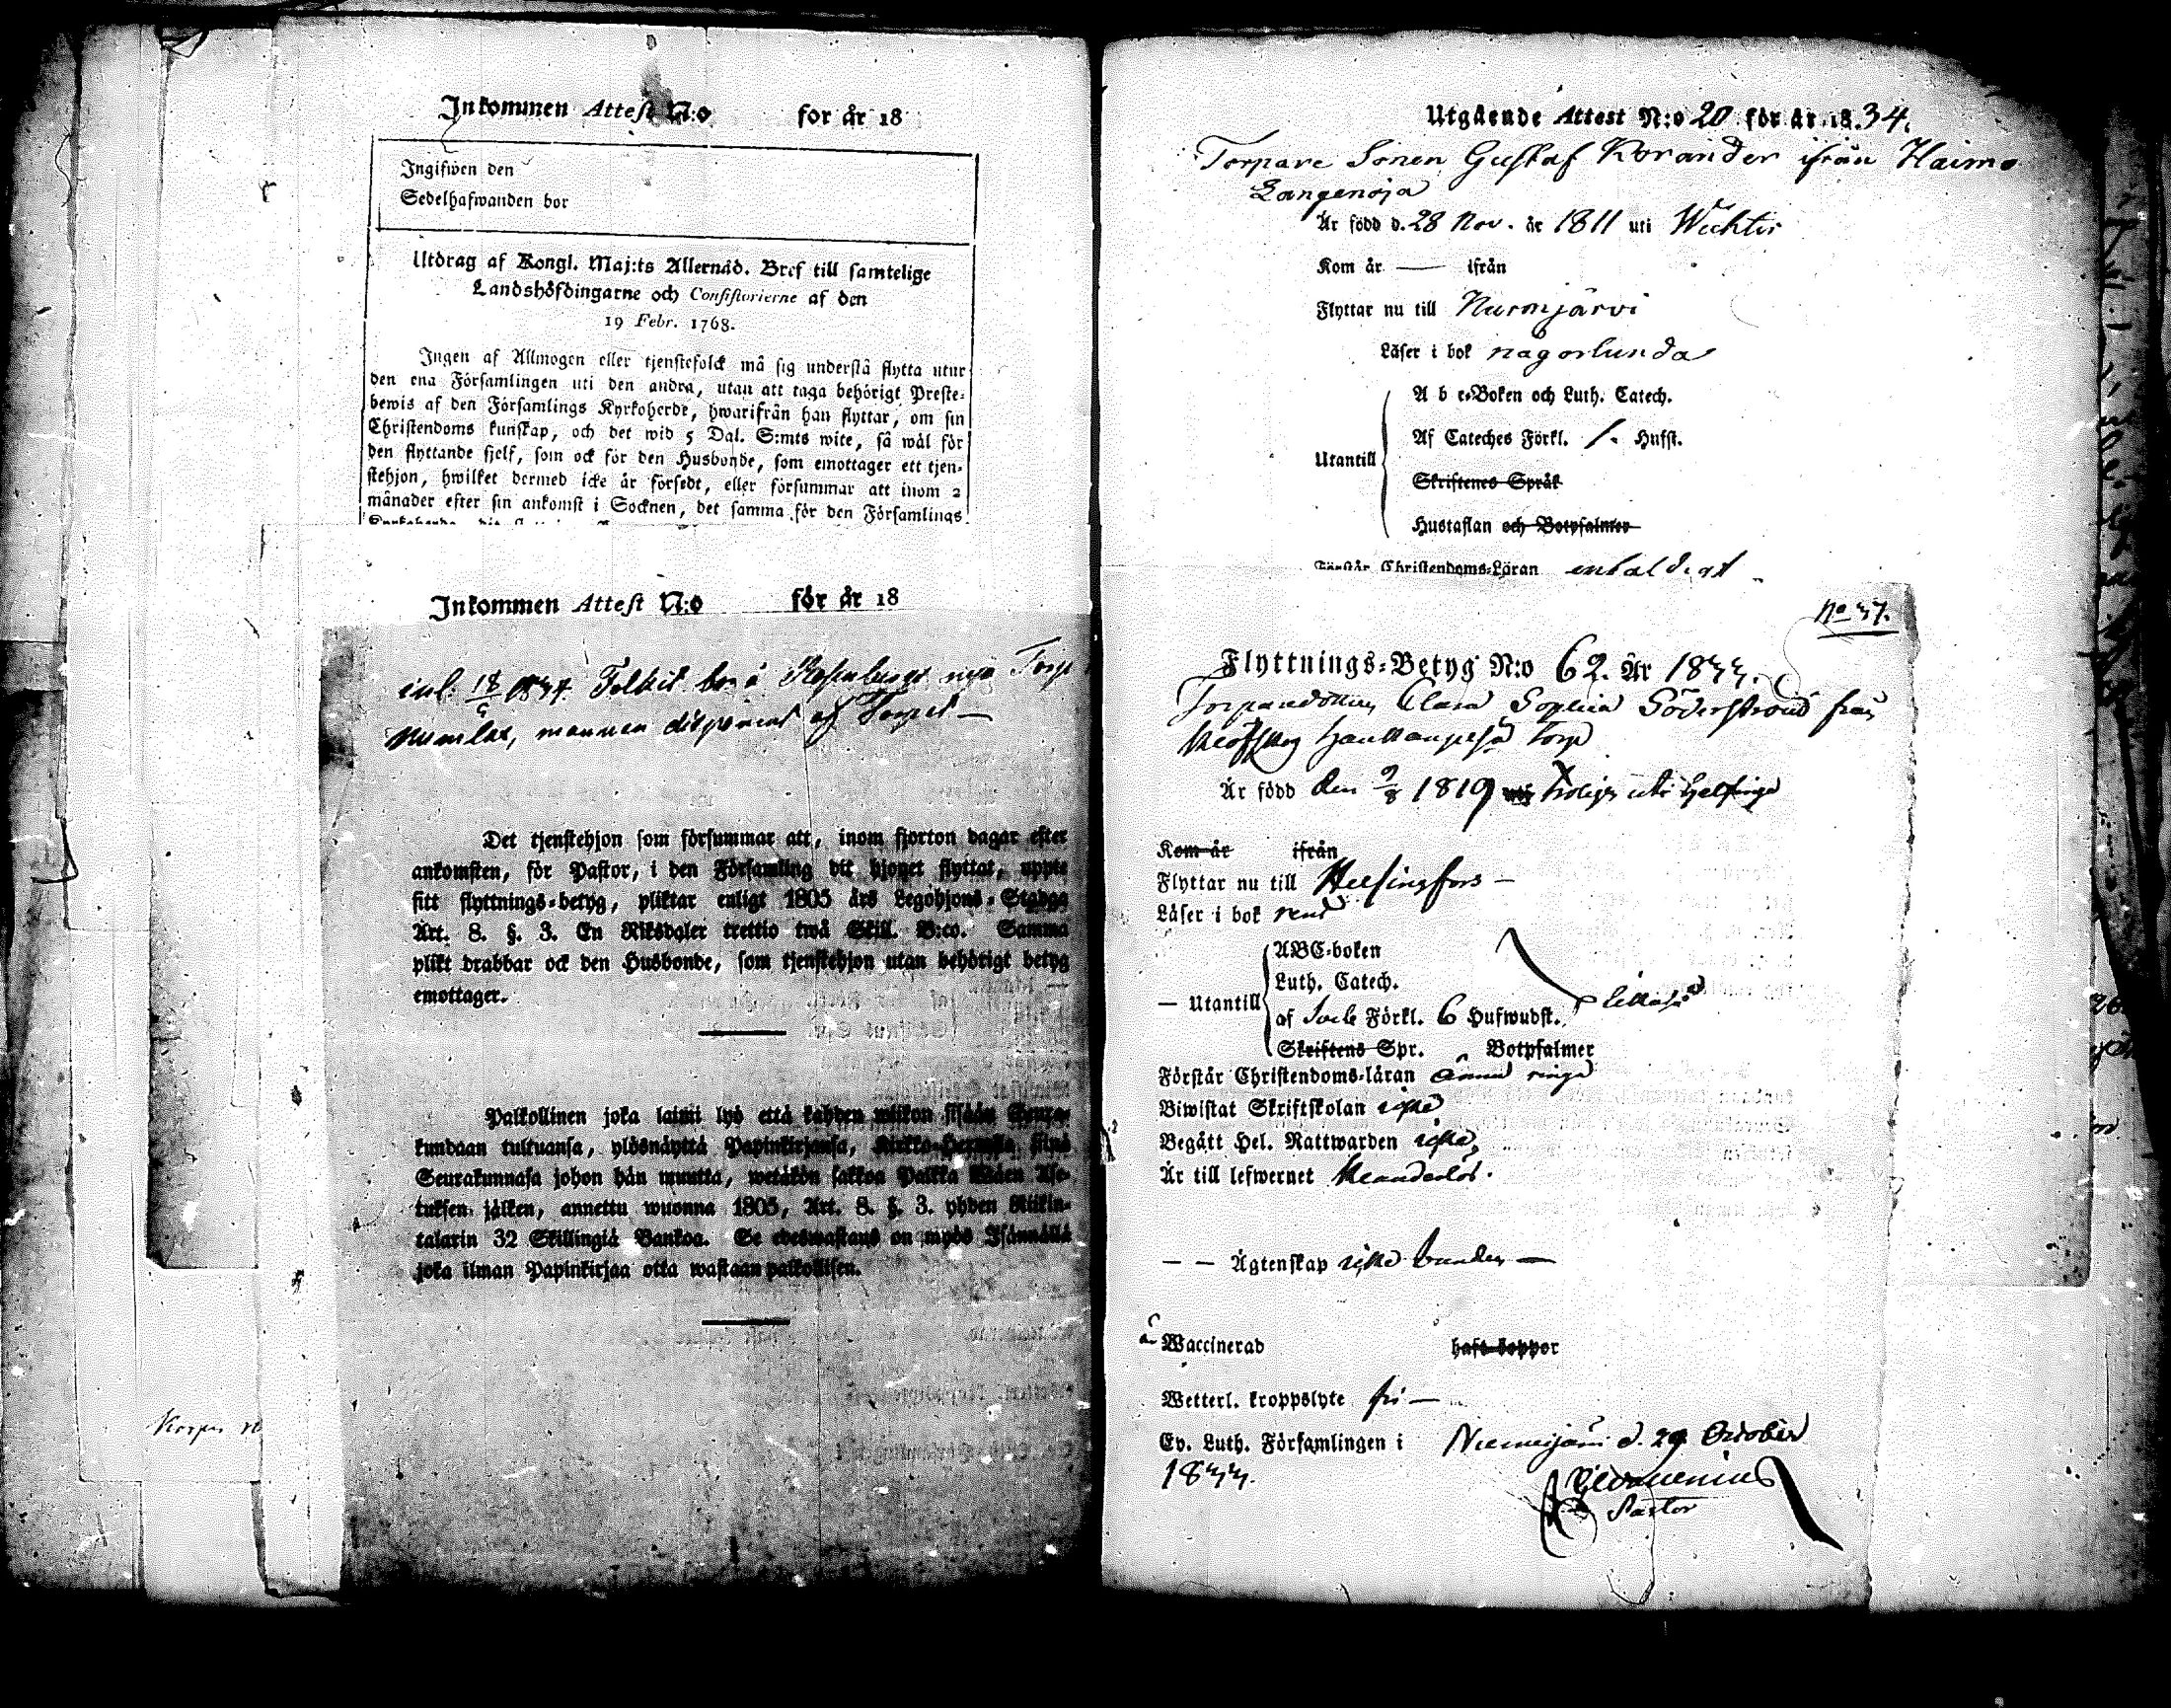 Inkommen Attest N:o for år 18
Ingifwen den
Sedelhafwanden bor
Utdrag af Kongl. Maj:ts Allernåd. Bref till samtelige
Landshöfdingarne och Consistorierne af den
19 Febr. 1768.
Ingen af Allmogen eller tjenstefolck må sig understå flytta utur
den ena Församlingen uti den andra, utan att taga behörigt Preste-
bewis af den Församlings Kyrkoherde, hwarifrån han flyttar, om sin
Christendoms kunskap, och det wid 5 Dal. S:mts wite, så wål för
den flyttande sjelf, som ock för den Husbonde, som emottager ett tjen-
stehjon, hwilket dermed icke år försedt, eller försummar att inom 2
månader efter sin ankomst i Socknen, det samma för den Församlings
Inkommen Attest N:o för år 18
inl. 18/ 1834 Folket bor å nya Torp
mannen af Torpet —
Det tjenstehjon som försummar att, inom fjorton dagar efter
ankomsten, för Pastor, i den Församling dit hjonet flyttat, uppte
sitt flyttnings-betyg, pliktar enligt 1805 års Legohjons-Stadga
Art. 8. §. 3. En Riksdaler trettio twå Skill. B:co. Samma
plikt drabbar ock den Husbonde, som tjenstehjon utan behörigt betyg
emottager.
Palkollinen joka laimi lyö että kahden wiikon sisään Seura-
kundaan tultuansa, ylösnäyttä Papinkirjansa, Kirkko-Herralla siinä
Seurakunnasa johon hän muutta, wetäkön sakkoa Palkka Wäen Ase-
tuksen jälken, annettu wuonna 1805, Art. 8. §. 3. yhden Riikin-
talarin 32 Skillingiä Bankoa. Se edeswastaus on myös Isännällä
joka ilman Papinkirjaa otta wastaan palkollisen.
Utgående Attest N:o 20 för år 1834.
Torpare Sonen Gustaf Korander ifrån Haimo
Langenoja
Är född d. 28 Nov. år 1811 uti Wichtis
Kom år — ifrån
Flyttar nu till Nurmjärvi
Läser i bok någorlunda
A b c-Boken och Luth. Catech.
Af Cateches Förkl. 1. Hufst.
Utantill
Skriftenes Språk
Hustaflan och Botpsalmer
Förstår Christendoms-Läran enfaldigt
No 37.
Flyttnings-Betyg N:o 62. År 1833.
Torparedottren Clara Sophia Söderström från
Torp
Är född den 9/8 1819 uti Helsinge
Kom år ifrån
Flyttar nu till Helsingfors —
Läser i bok rent
ABC-boken
Luth. Catech.
— Utantill
af Förkl. 6 Hufwudst.
Skriftens Spr. Botpsalmer
Förstår Christendoms-läran ännu ringa
Biwistat Skriftskolan icke
Begått Hel. Nattwarden icke
Är till lefwernet klanderlös.
— — Ägtenskap icke bunden —
är Waccinerad haft koppor
Wetterl. kroppslyte fri —
Ev. Luth. Församlingen i Nurmijärvi d. 29 October
1833.
Pastor